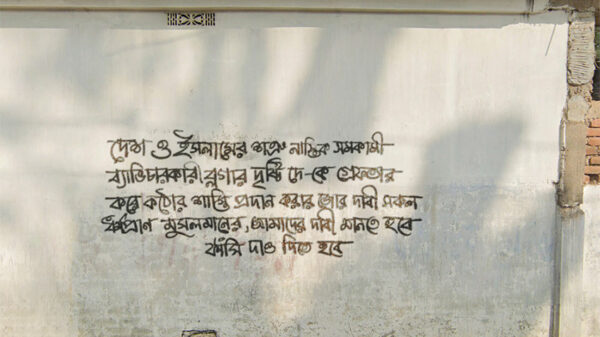 দেশ ও ইসলামের শত্রু নাস্তিক সমকামী
ব্যাভিচারকারী ব্লগার দৃষ্টি দে-কে গ্রেফতার
করে কঠোর শাস্তি প্রদান করার জোর দাবী একল
ধর্মপ্রান মুসলমানের, আমাদের দাবী মানতে হবে
ফাঁসি দাও দিতে হবে